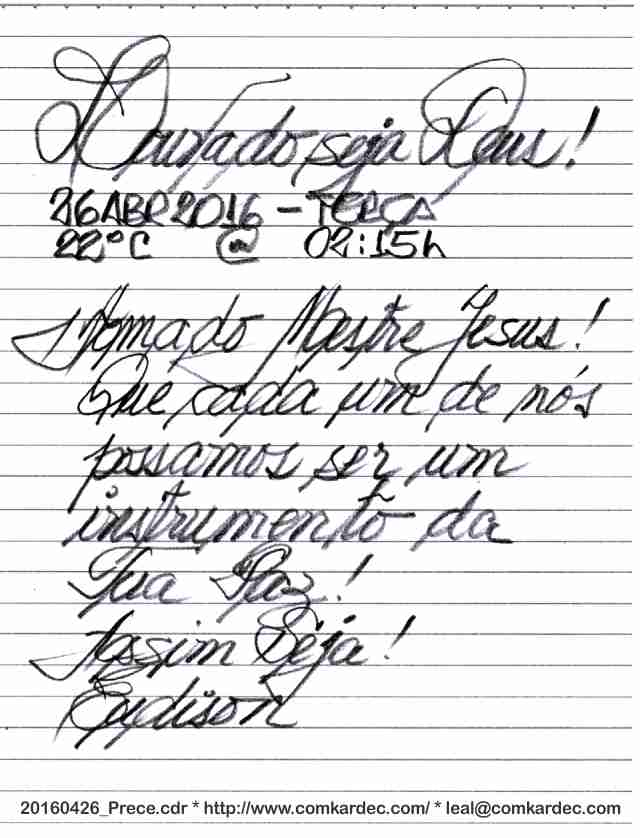 Louvado seja Deus!
26ABR2016 - TERÇA
22°C @ 02:15h
Amado Mestre Jesus!
Que cada um de nós
possamos ser um
instrumento da
Tua Paz!
Assim Seja!
Eudison
20160426_Prece.cdr * http://www.comkardec.com/ * leal@comkardec.com